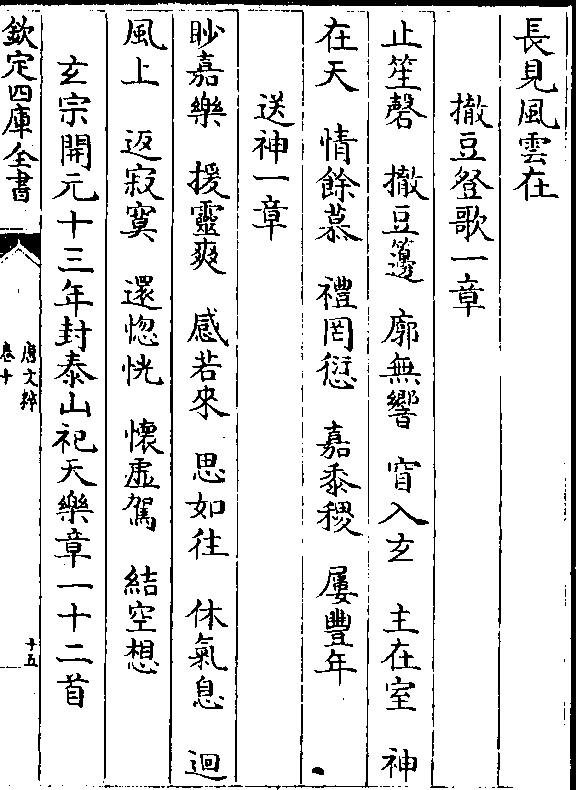 長見風雲在
撤豆登歌一章
止笙磬 撤豆籩 廓無響 窅入玄 主在室 神
在天 情餘慕 禮罔愆 嘉黍稷 屢豐年
送神一章
眇嘉樂 援靈爽 感若來 思如往 休氣息 迴
風上 返寂寞 還惚恍 懷虛駕 結空想
玄宗開元十三年封泰山祀天樂章一十二首
欽定四庫全書
唐文粹
卷十
十五